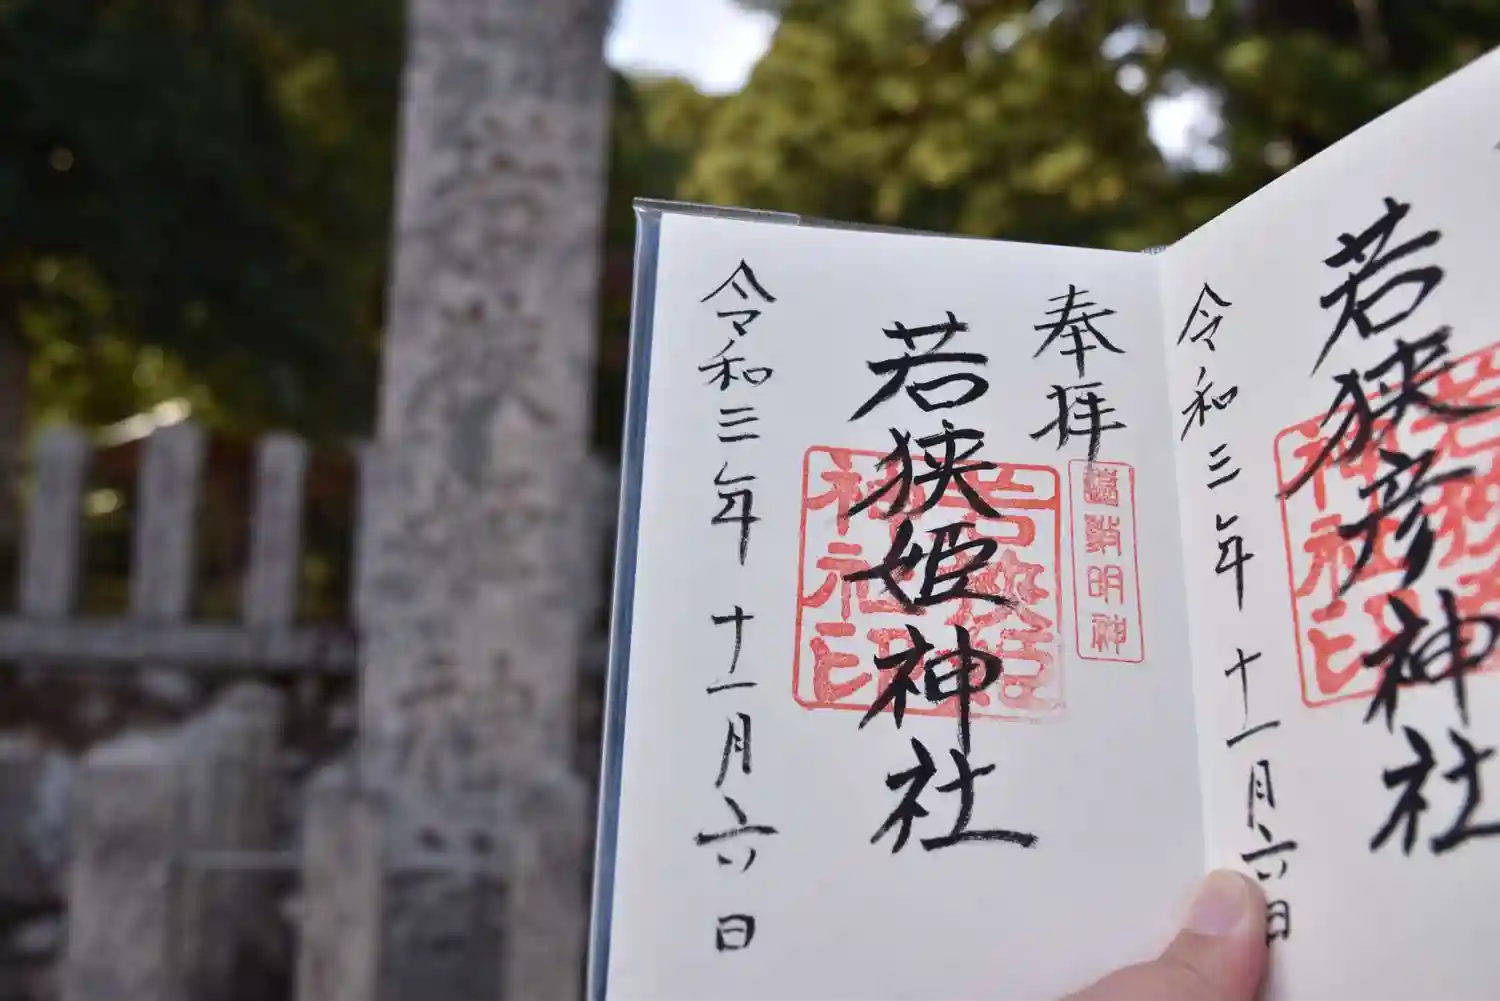 若狭彦神社
令和三年 十一月六日
奉拝
明神
若狭姫神社
若狭姫
神社印
令和三年 十一月六日
神社印
若狭姫神社